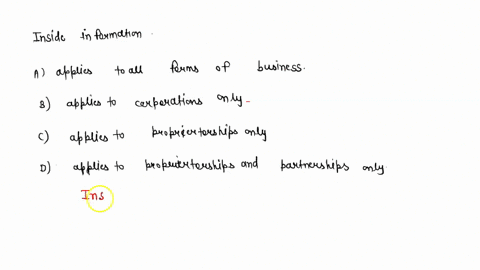 Inside information.
A) applies to all forms of business.
B) applies to corporations only.
C) applies to propriertorships only
D) applies to propriertorships and partnerships only.
Ins